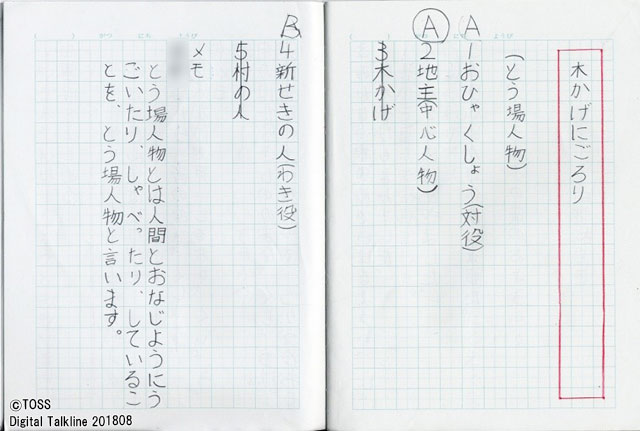 木かげにごろり
(とう場人物)
A 1おひゃくしょう(対役)
A 2地主(中心人物)
3木かげ
B 4新せきの人(わき役)
5村の人
メモ
とう場人物とは人間とおなじようにう
ごいたり、しゃべったり、しているこ
とを、とう場人物と言います。
©TOSS
Digital Talkline 201808